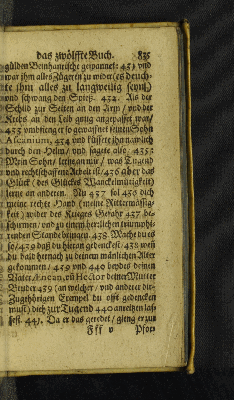 das zwölffte Buch. 835
gülden Beinharnische gespannet: 431 und
war ihm alles Zögern zu wider (es deuch-
te ihm alles zu langweilig seyn)
und schwang den Spieß. 432. Als der
Schild zur Seiten an den Arm / und der
Krebs an den Leib gnug angepasset war/
433 umbfieng er so gewaffnet seinen Sohn
Ascanium, 434 und küssete ihn nämlich
durch den Helm / und sagete also: 435
Mein Sohn / lerne an mir / was Tugend
und rechtschaffene Arbeit ist / 436 aber das
Glück (des Glückes Wanckelmütigkeit)
lerne an anderen. Nu 437 sol dich
meine rechte Hand (meine Rittermässig-
keit) wider des Krieges Gefahr be-
schirmen / und zu einem herrlichen triumphi-
renden Stande bringen. 438 Mache du es
so / daß du hieran gedenckest / 438 weñ
du bald hernach zu deinem mänlichen Alter
gekommen / 439 und 440 beydes deinen
Vater Æneam, uñ Hector deiner Mutter
Bruder 439 (an welcher / und anderer die-
Zugehörigen Exempel du offt gedencken
must) dich zur Tugend 440 anreitzen las-
sest. 441. Da er das geredet / gieng er zur
Fff v Pfor-